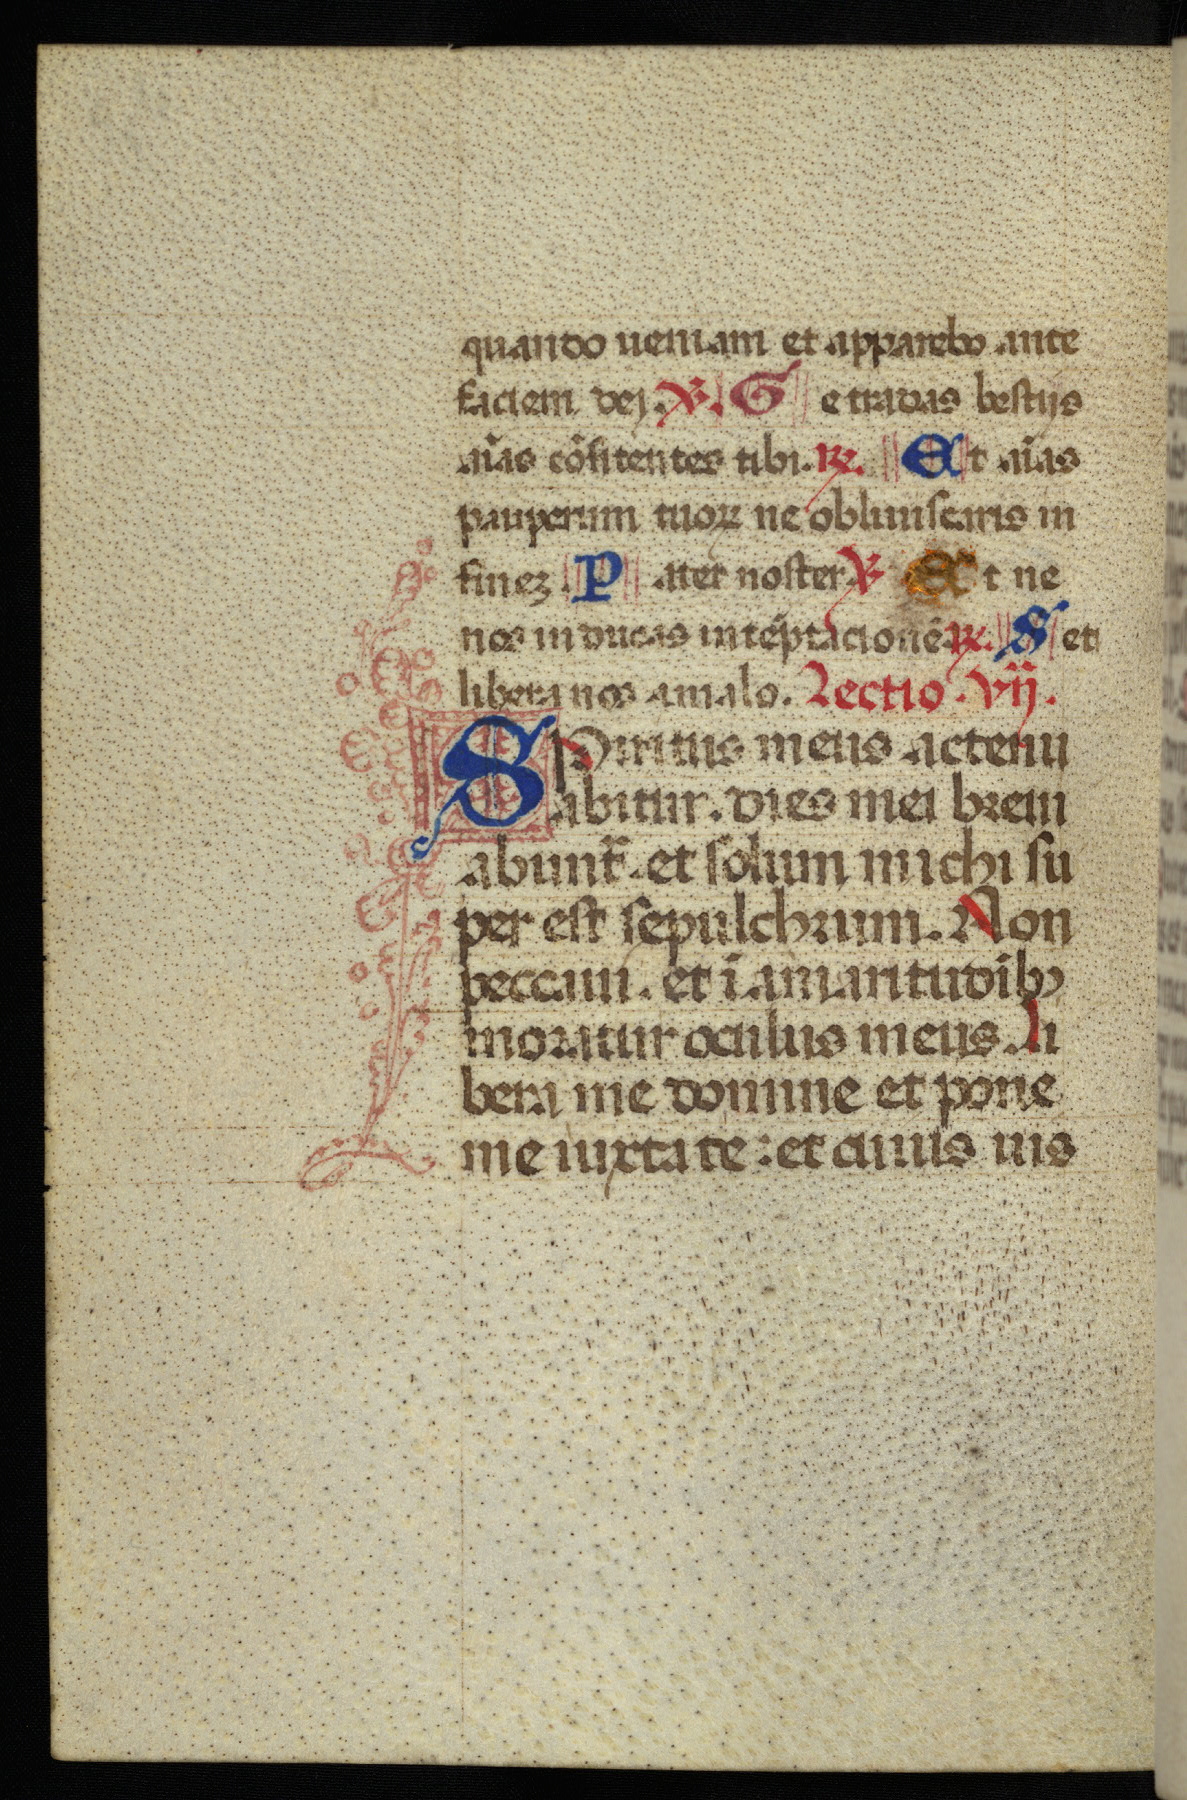 quando ueniam et apparebo ante
faciem dei. ℣. G e tradas bestijs
aīas cōfitentes tibi. ℟. Et aīas
pauperum tuoꝝ ne obliuiscaris in
fineʒ. P ater noster ℣ Et ne
nos inducas in tēptacionē ℟. S et
libera nos a malo. Lectio. vij.
SPiritus meus actenu
abitur. dies mei breui
abunt̄. et solum michi su
per est sepulchrum. Non
peccaui. et ī amaritudībꝫ
moratur oculus meus. Li
bera me domine et pone
me iuxta te: et cuiuis uis